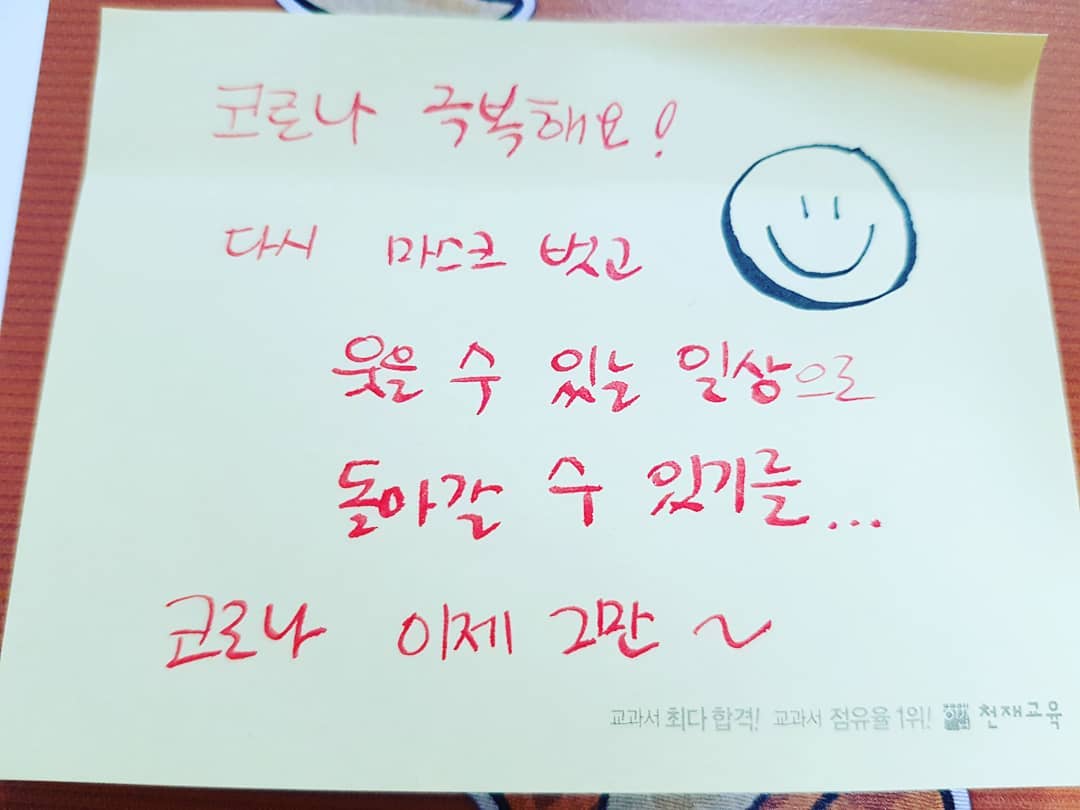 코로나 극복해요!
다시 마스크 벗고
웃을 수 있는 일상으로
돌아갈 수 있기를...
코로나 이제 그만 ~
교과서 최다 합격! 교과서 점유율 1위! 천재교육